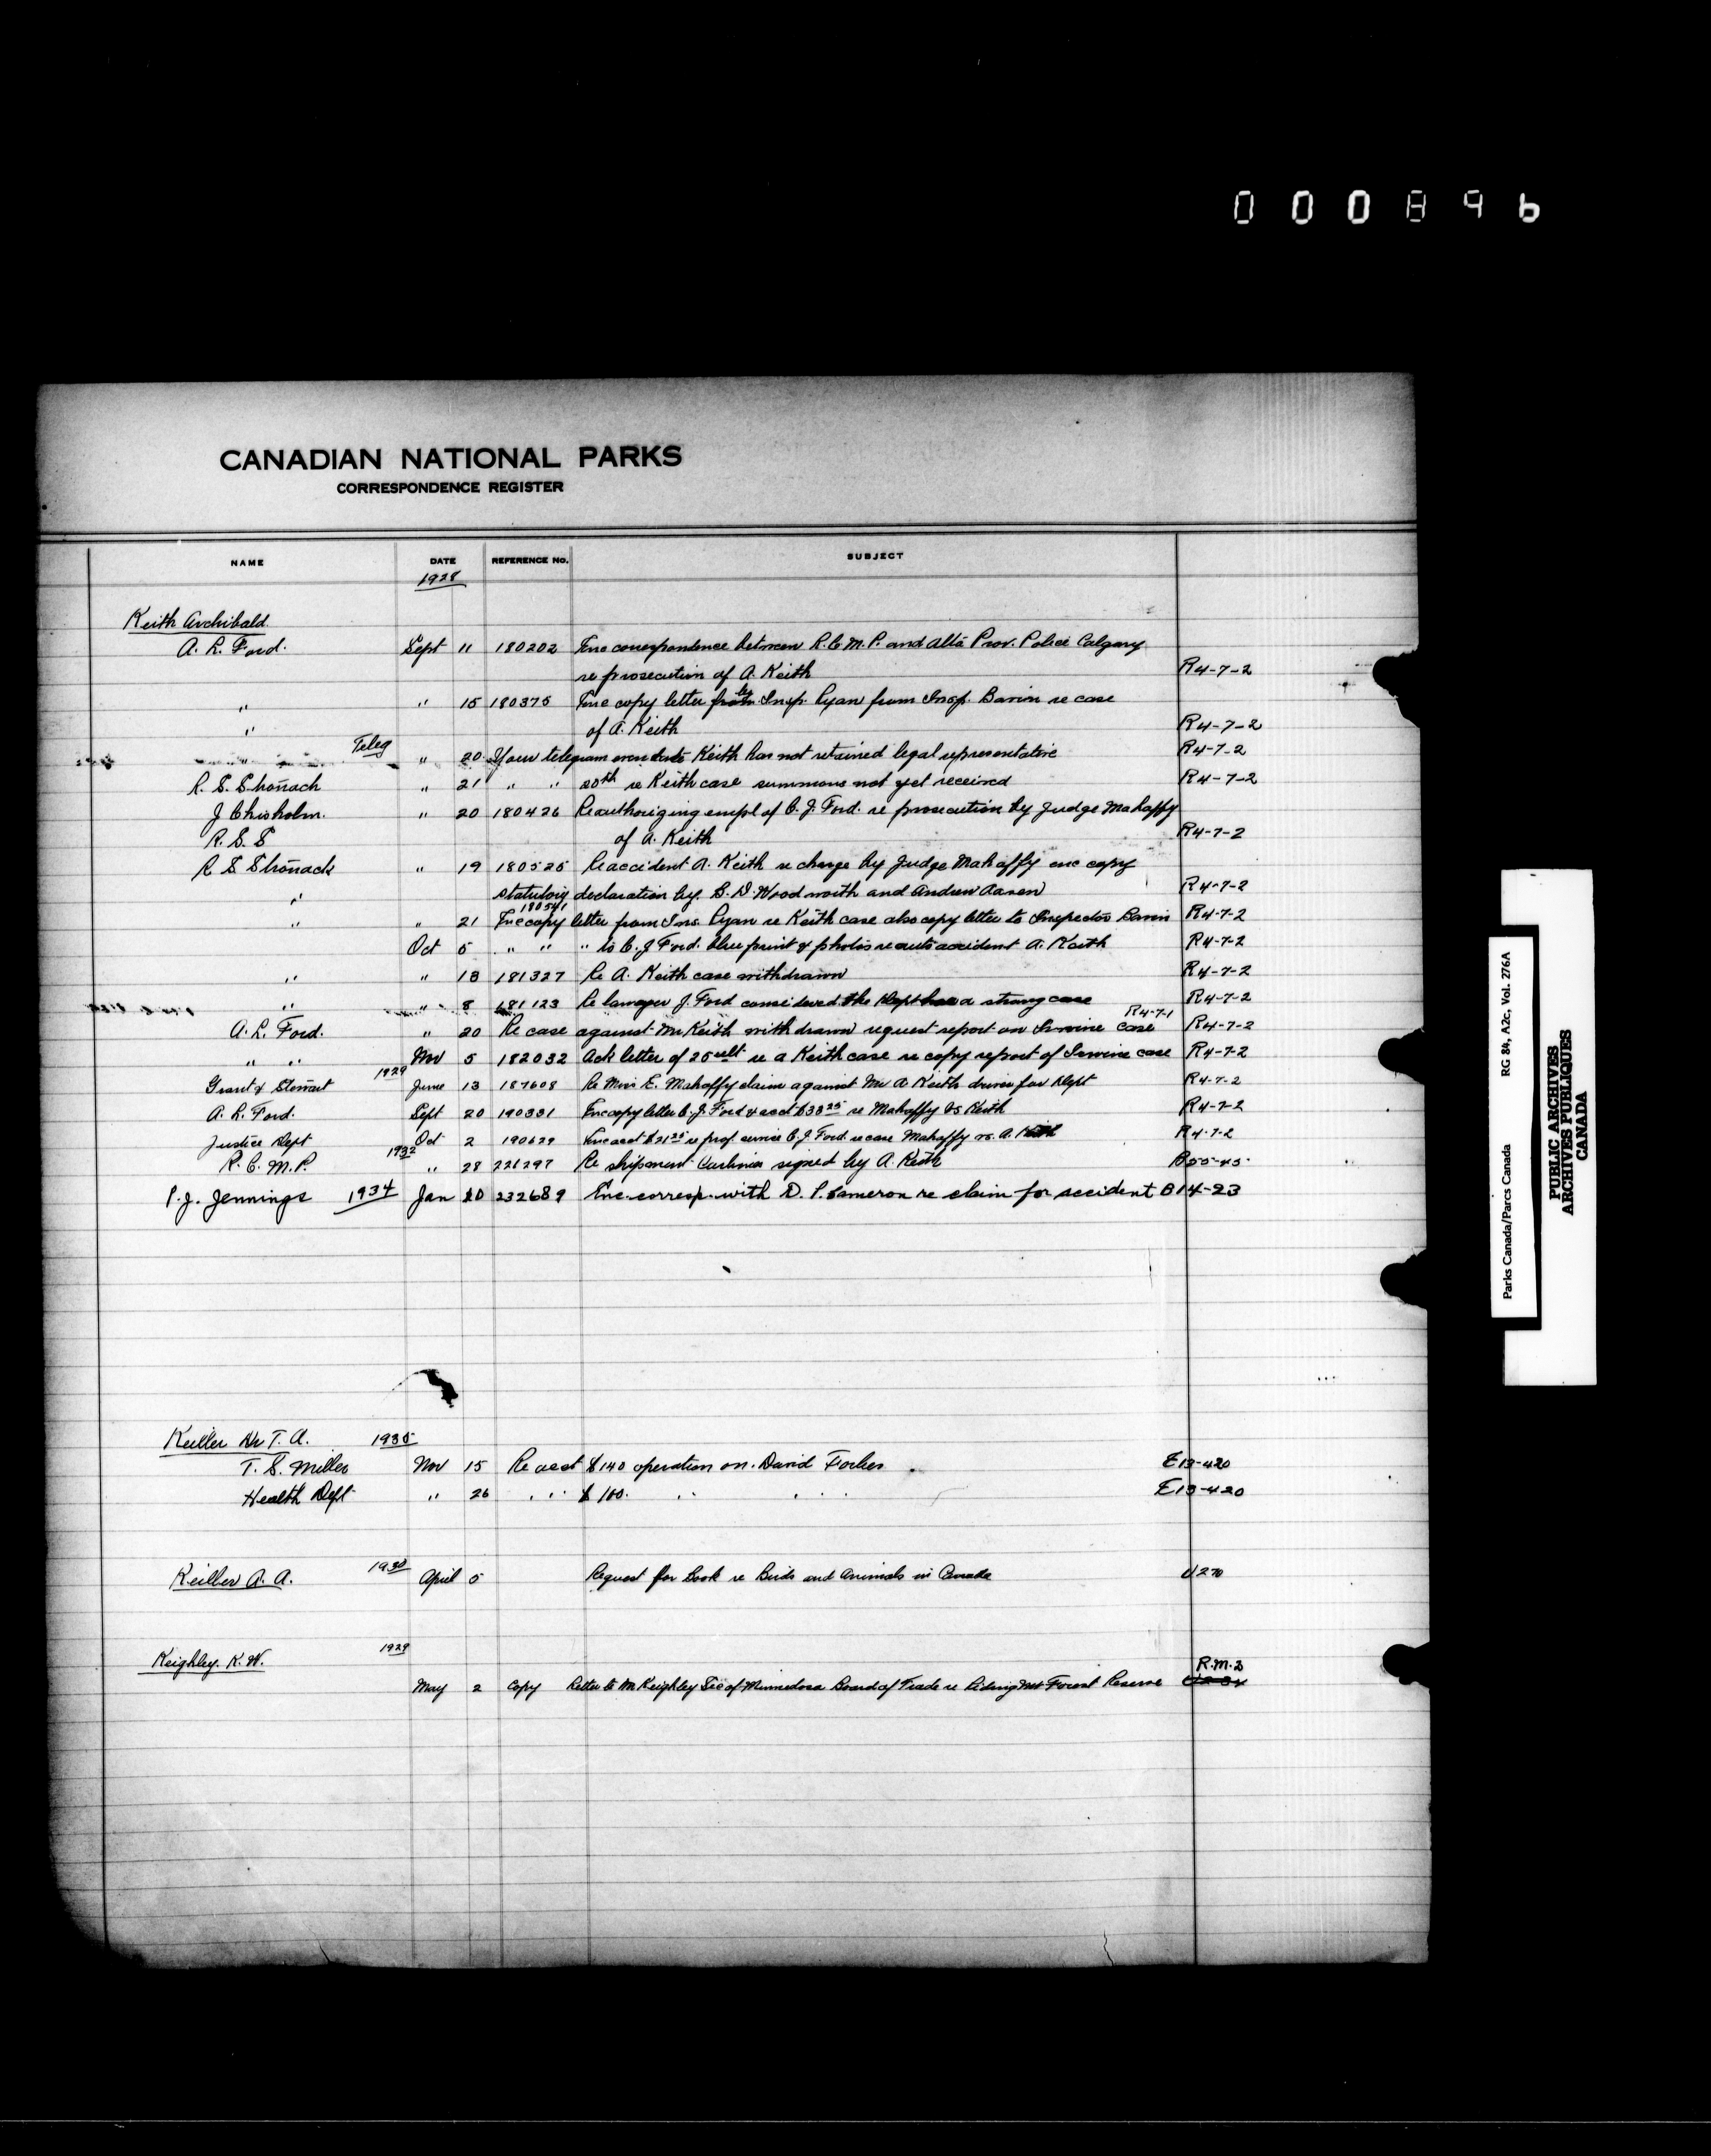 000896
CANADIAN NATIONAL PARKS
CORRESPONDENCE REGISTER
NAME DATE REFERENCE No. SUBJECT
1928
Keith Archibald
A. R. Ford. Sept 11 180202 Enc correspondence between R.C.M.P. and Alta Prov. Police Calgary
re prosecution of A. Keith R4-7-2
" " 15 180375 Enc copy letter from to Insp. Ryan from Insp. Bavin re case
" of A. Keith R4-7-2
" Teleg " 20 Your telegram even date Keith has not retained legal representative R4-7-2
R. S. Stronach " 21 " " 20th re Keith case summons not yet received R4-7-2
J Chisholm. " 20 180426 Re authorizing empl of C. J. Ford. re prosecution by Judge Mahaffy
R. S. S of A. Keith R4-7-2
R S Stronack " 19 180525 Re accident A. Keith re charge by Judge Mahaffy enc copy
" statutory declaration by. S. D. Woodworth and Andrew Aasen R4-7-2
180541
" " 21 Enc copy letter from Ins. Ryan re Keith case also copy letter to Inspector Bavin R4-7-2
Oct 5 " " " to C. J Ford. blue print & photos re auto accident A. Keith R4-7-2
" " 18 181327 Re A. Keith case withdrawn R4-7-2
" " 8 181123 Re lawyer J. Ford considered the Dept has a strong case R4-7-2
R4-7-1
A. R. Ford. " 20 Re case against Mr Keith withdrawn request report on Irvine case R4-7-2
" " Nov 5 182032 Ack letter of 25 ult re A Keith case re copy report of Irvine case R4-7-2
1929
Grant & Stewart June 13 187608 Re Miss E. Mahaffy claim against Mr A Keith driver for Dept R4-7-2
A. R. Ford. Sept 20 190331 Enc copy letter C. J. Ford & acct $33 25 re Mahaffy vs Keith R4-7-2
Justice Dept Oct 2 190629 Enc acct $21 25 re prof. service C. J. Ford re case Mahaffy vs. A. Keith R4-7-2
1932
R. C. M. P. " 28 221297 Re shipment signed by A. Keith B55-45
P. J. Jennings 1934 Jan 20 232689 Enc. corresp. with D. P. Cameron re claim for accident B14-23
Keiller Dr T. A. 1935
T. S. Miller Nov 15 Re acct $140 operation on. David Forbes E13-420
Health Dept " 26 " " $100. " " " " E13-420
1930
Keiller A. A. April 5 Request for Book re Birds and Animals in Canada U270
1929
Keighley. K. W.
R.M.2
May 2 Copy Letter to Mr Keighley Sec of Minnedosa Board of Trade re Riding Mt Forest Reserve
Parks Canada/Parcs Canada RG 84, A2c, Vol. 276A
PUBLIC ARCHIVES
ARCHIVES PUBLIQUES
CANADA